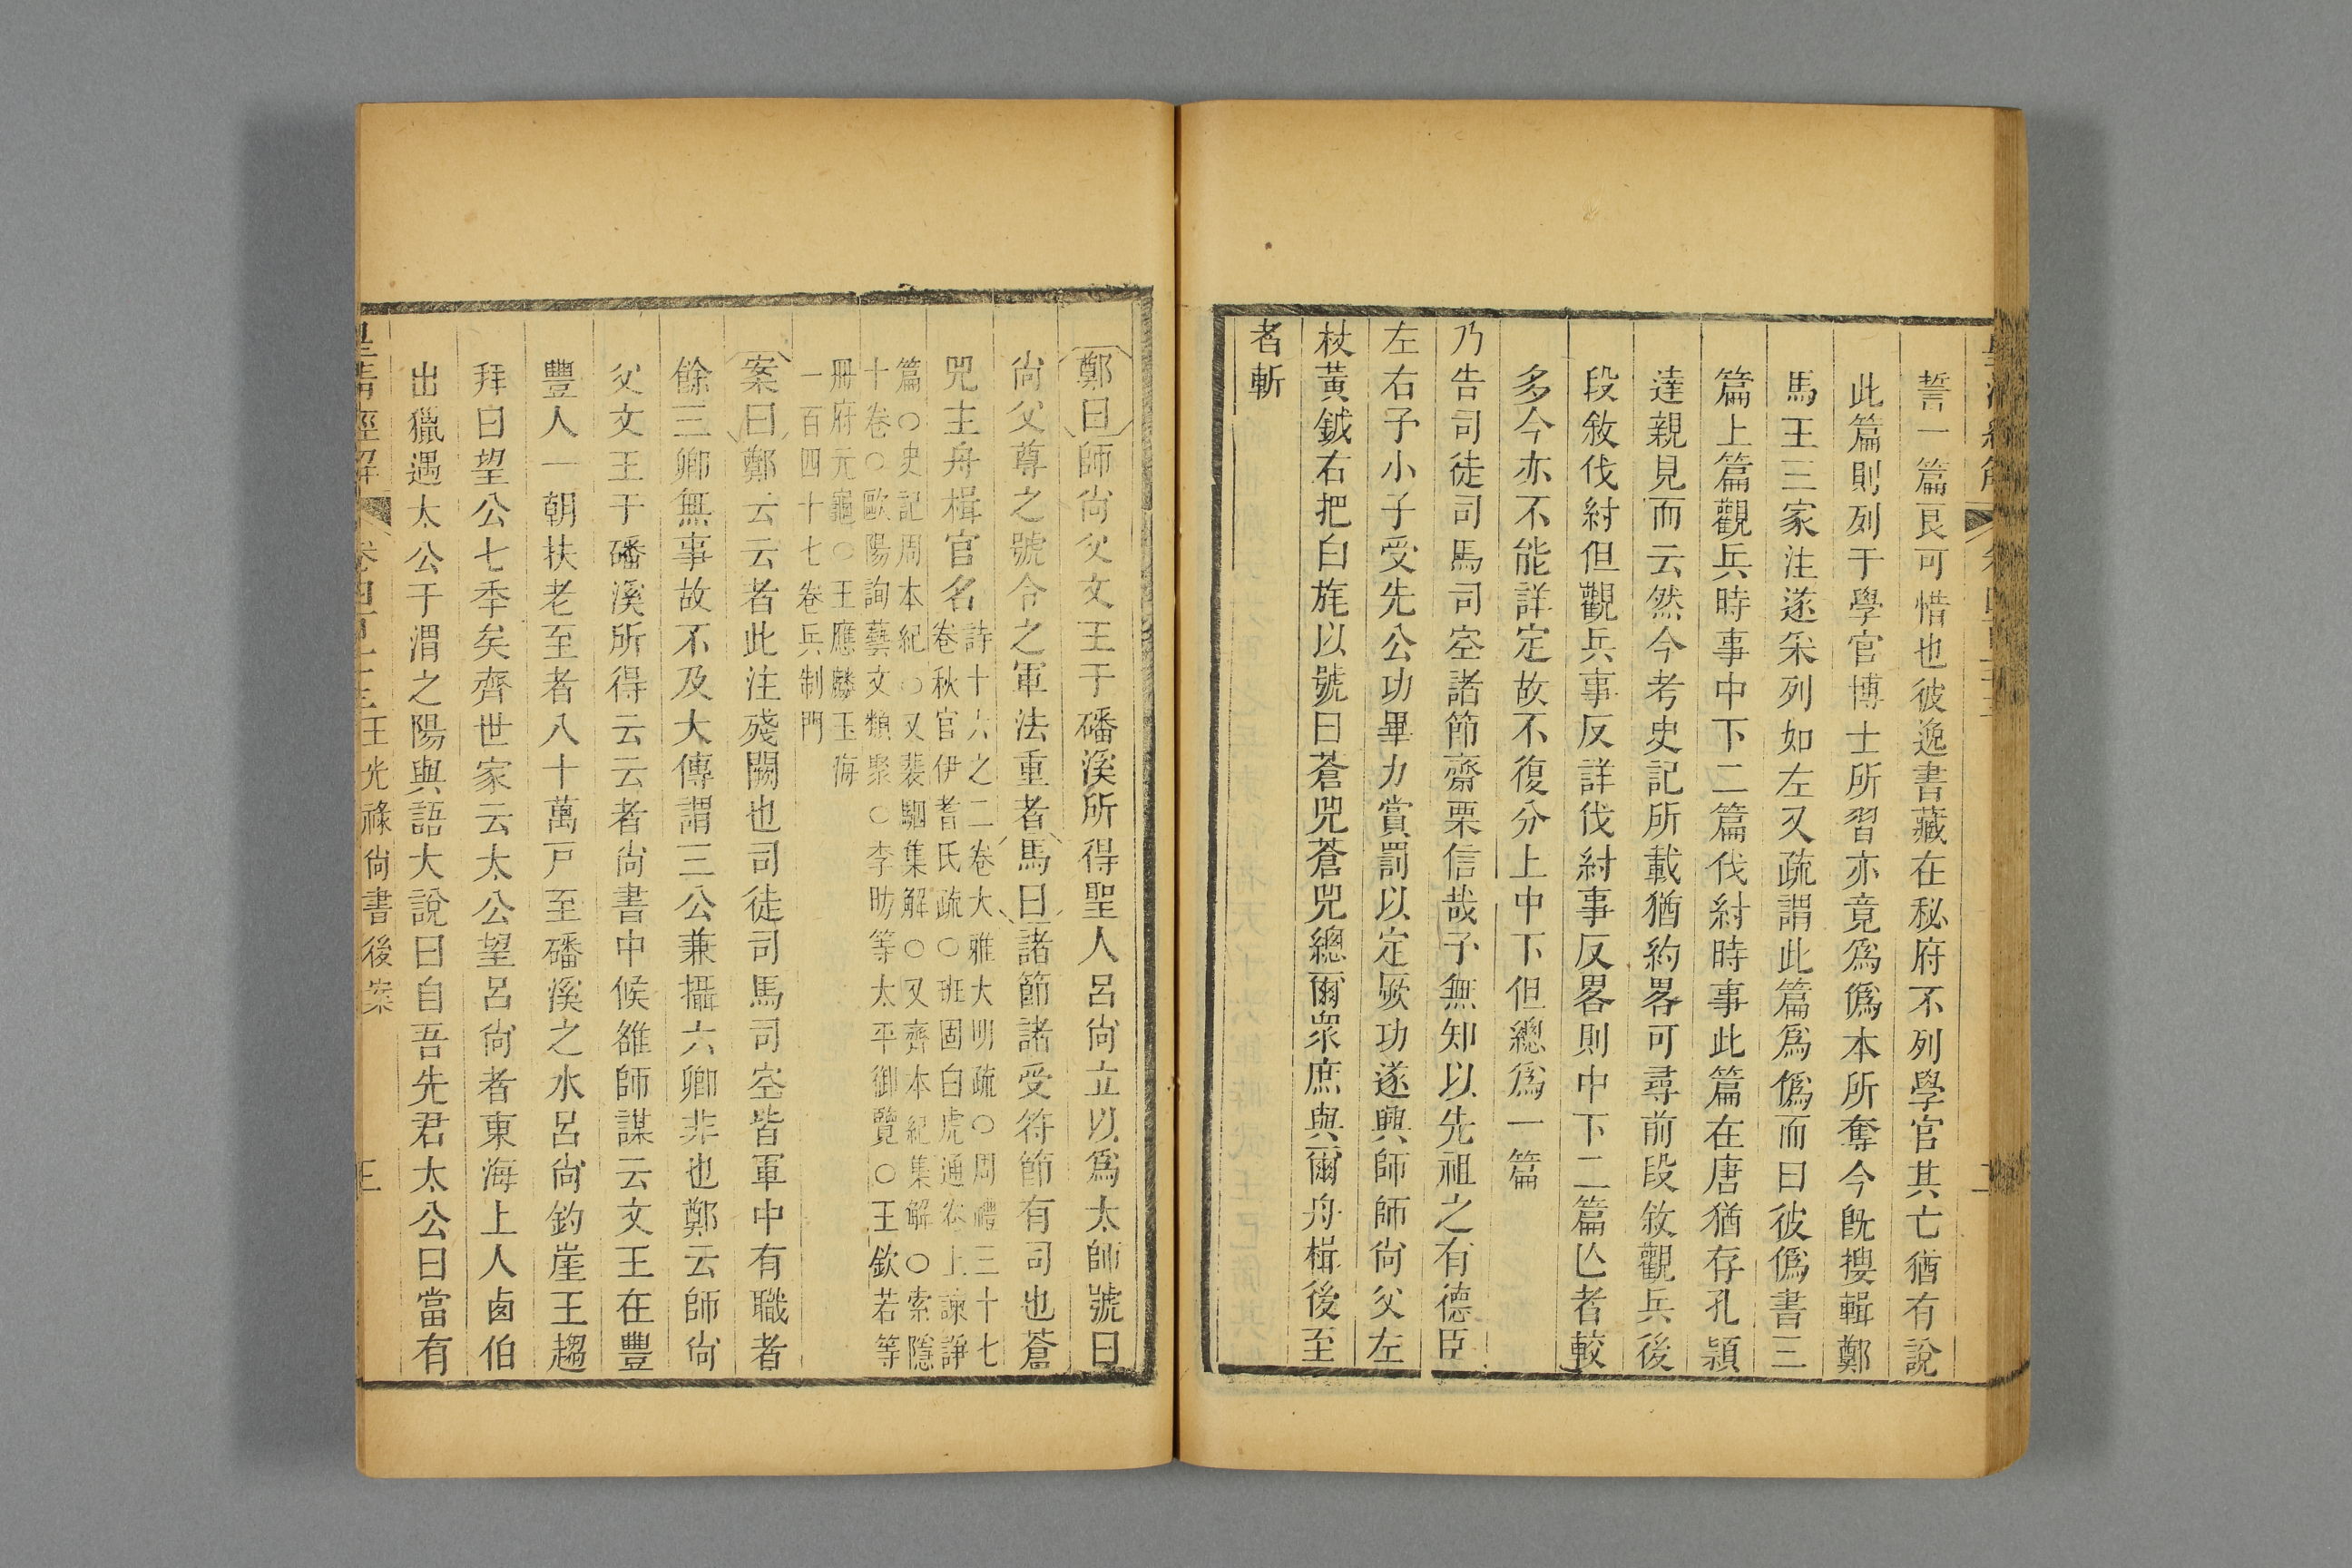 誓一篇艮可惜也彼逸書藏在秘府不列學官其亡猶有說
此篇則列于學官博士所習亦竟爲僞本所奪今旣搜輯鄭
馬王三家注遂采列如左又疏謂此篇爲僞而曰彼僞書三
篇上篇觀兵時事中下二篇伐紂時事此篇在唐猶存孔穎
達親見而云然今考史記所載猶約畧可尋前段敘觀兵後
段敘伐紂但觀兵事反詳伐紂事反畧則中下二篇亾者較
多今亦不能詳定故不復分上中下但總爲一篇
乃告司徒司馬司空諸節齋栗信哉予無知以先祖之有德臣
左右予小子受先公功畢力賞罰以定厥功遂興師師尚父左
杖黃鉞右把白旄以號曰蒼兕蒼兕總爾衆庶與爾舟楫後至
者斬
鄭曰師尚父文王于磻溪所得聖人呂尚立以爲太師號曰
尚父尊之號令之軍法重者馬曰諸節諸受符節有司也蒼
兕主舟楫官名
詩十六之二卷大雅大明疏○周禮三十七
卷秋官伊耆氏疏○班固白虎通卷上諫諍
篇○史記周本紀○又裴駰集解○又齊本紀集解○索隱
十卷○歐陽詢藝文類聚○李昉等太平御覽○王欽若等
冊府元龜○王應麟玉海
一百四十七卷兵制門
案曰鄭云云者此注殘闕也司徒司馬司空皆軍中有職者
餘三卿無事故不及大傳謂三公兼攝六卿非也鄭云師尚
父文王于磻溪所得云云者尚書中候雒師謀云文王在豐
豐人一朝扶老至者八十萬戸至磻溪之水呂尚釣崖王趨
拜曰望公七季矣齊世家云太公望呂尚者東海上人鹵伯
出獵遇太公于渭之陽與語大說曰自吾先君太公曰當有
皇淸經解
王光祿尚書後案